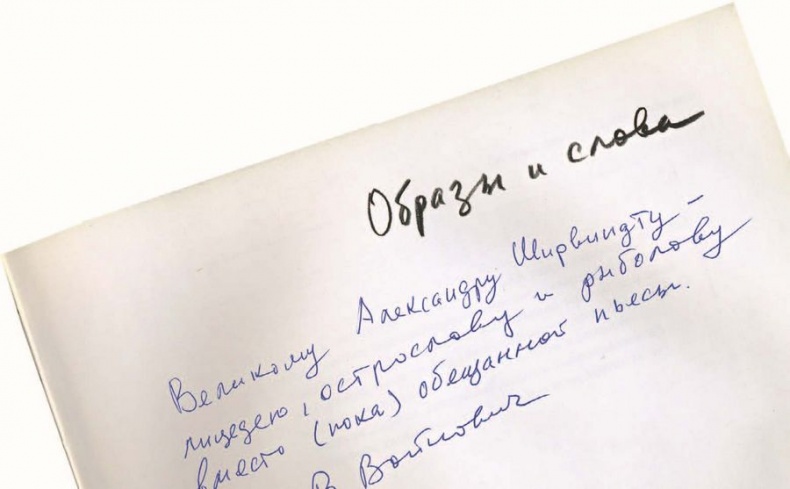 Образы и слова
Великому Александру Ширвиндту -
лицедею, острослову и рыболову
вместо (пока) обещанной пьесы.
В Войнович